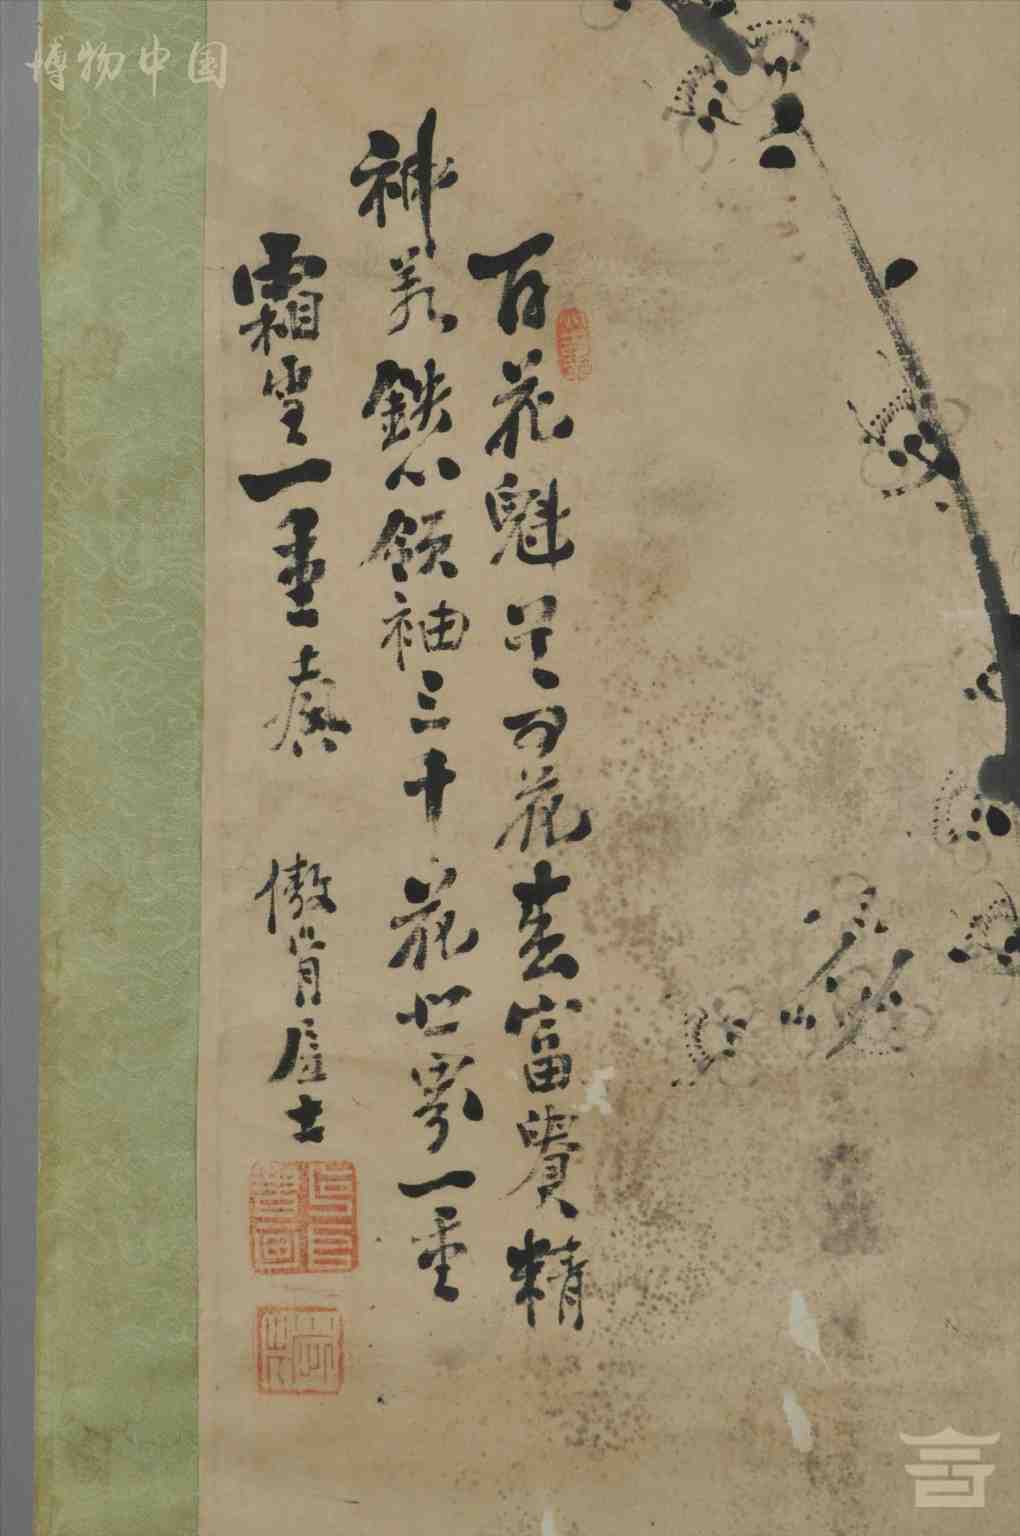 百花魁是百花春富貴精
神羨鐵心領袖三十花世界一重
霜雪一重香
傲肖居士
博物中国